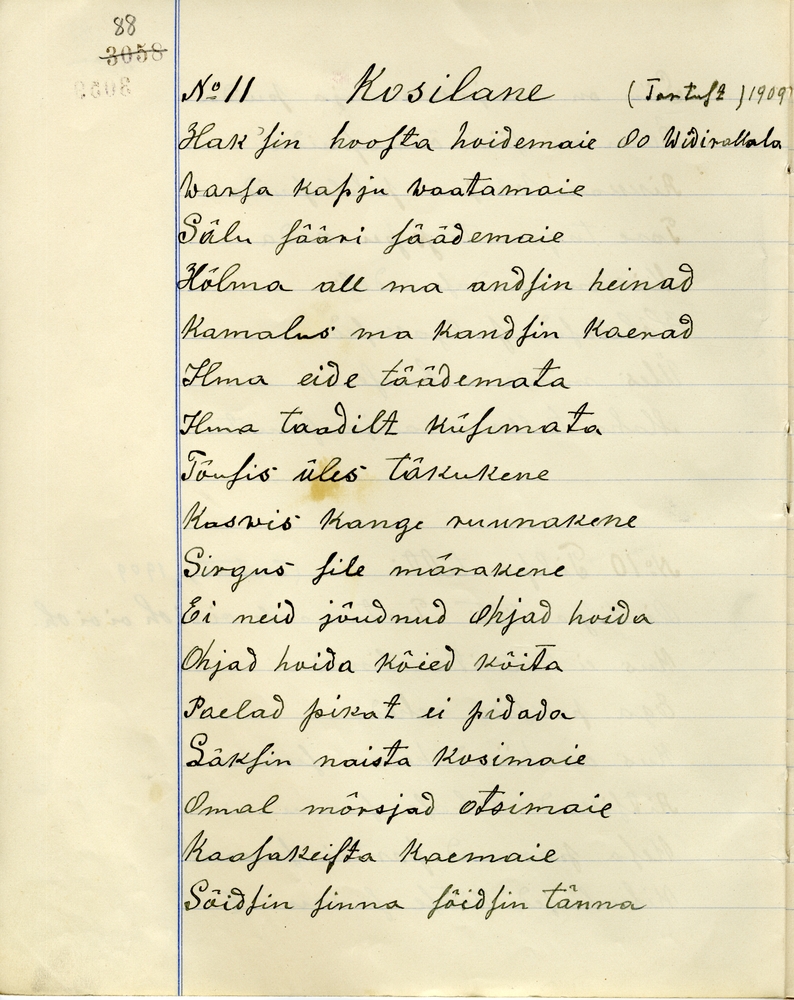 88
3058
No 11 Kosilane (Tartust) 1909
Hak'sin hoosta hoidemaie Oo Widirallala
Warsa kapju waatamaie
Sälu sääri säädemaie
Hõlma all ma andsin heinad
Kamalus ma kandsin Kaerad
Ilma eide täädemata
Ilma taadilt küsimata
Tõusis üles täkukene
Kaswis Kange ruunakene
Sirgus sile märakene
Ei neid jõudnud Ohjad hoida
Ohjad hoida kõied kõita
Paelad pikat ei pidada
Läksin naista Kosimaie
Omal mõrsjad otsimaie
Kaasakeista Kaemaie
Sõidsin sinna sõidsin tänna